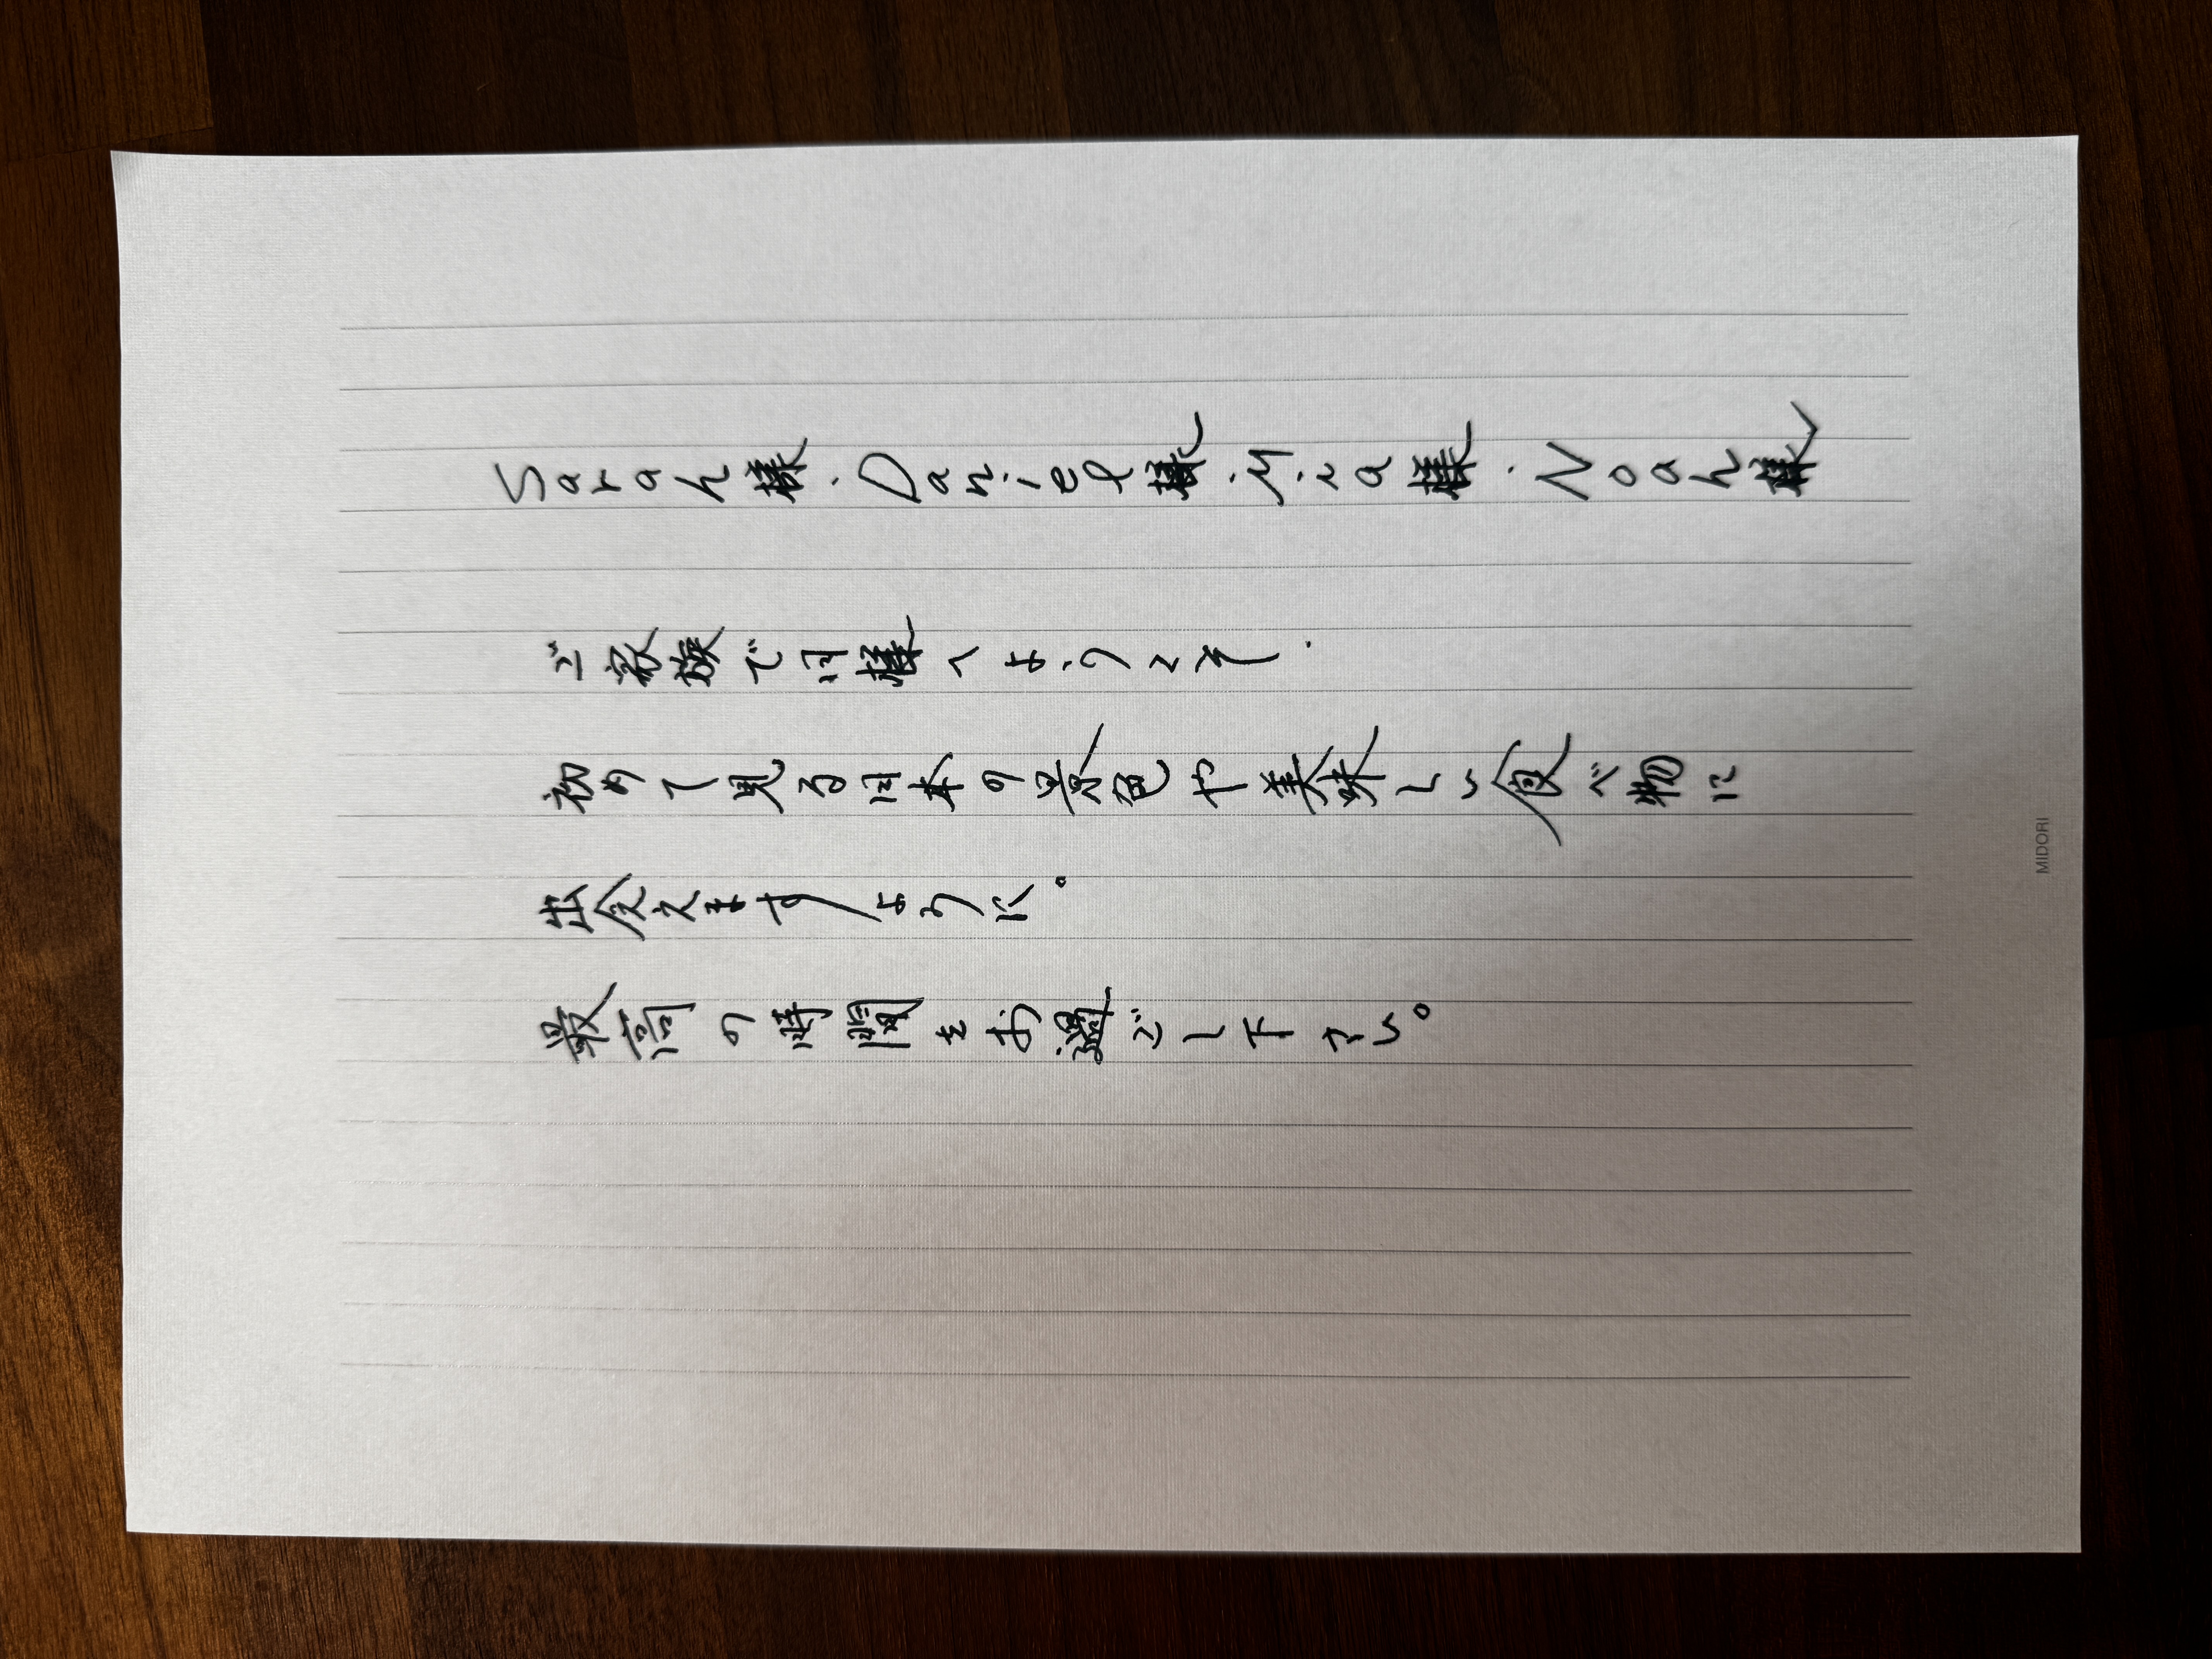 Sarah様・Daniel様・Mina様・Noah様
ご家族で日様へようこそ.
初めて見る日本の景色や美味しい食べ物に
出会えますように。
最高の時間をお過ごし下さい。
MIDORI